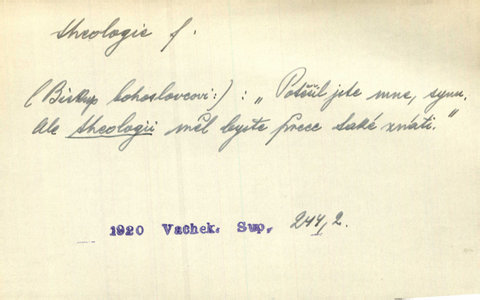 theologie f.
(Biskup bohoslovcovi:) : „Potěšil jste mne, synu.
Ale theologii měl byste přece také znáti."
1920 Vachek. Sup, 244, 2.